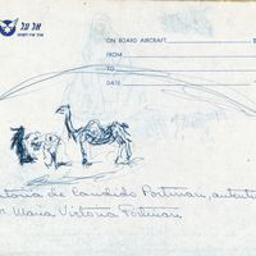 אל על
ON BOARD AIRCRAFT
FROM
TO
DATE
de Candido Portinari, autent
Maria Victoria Portinari